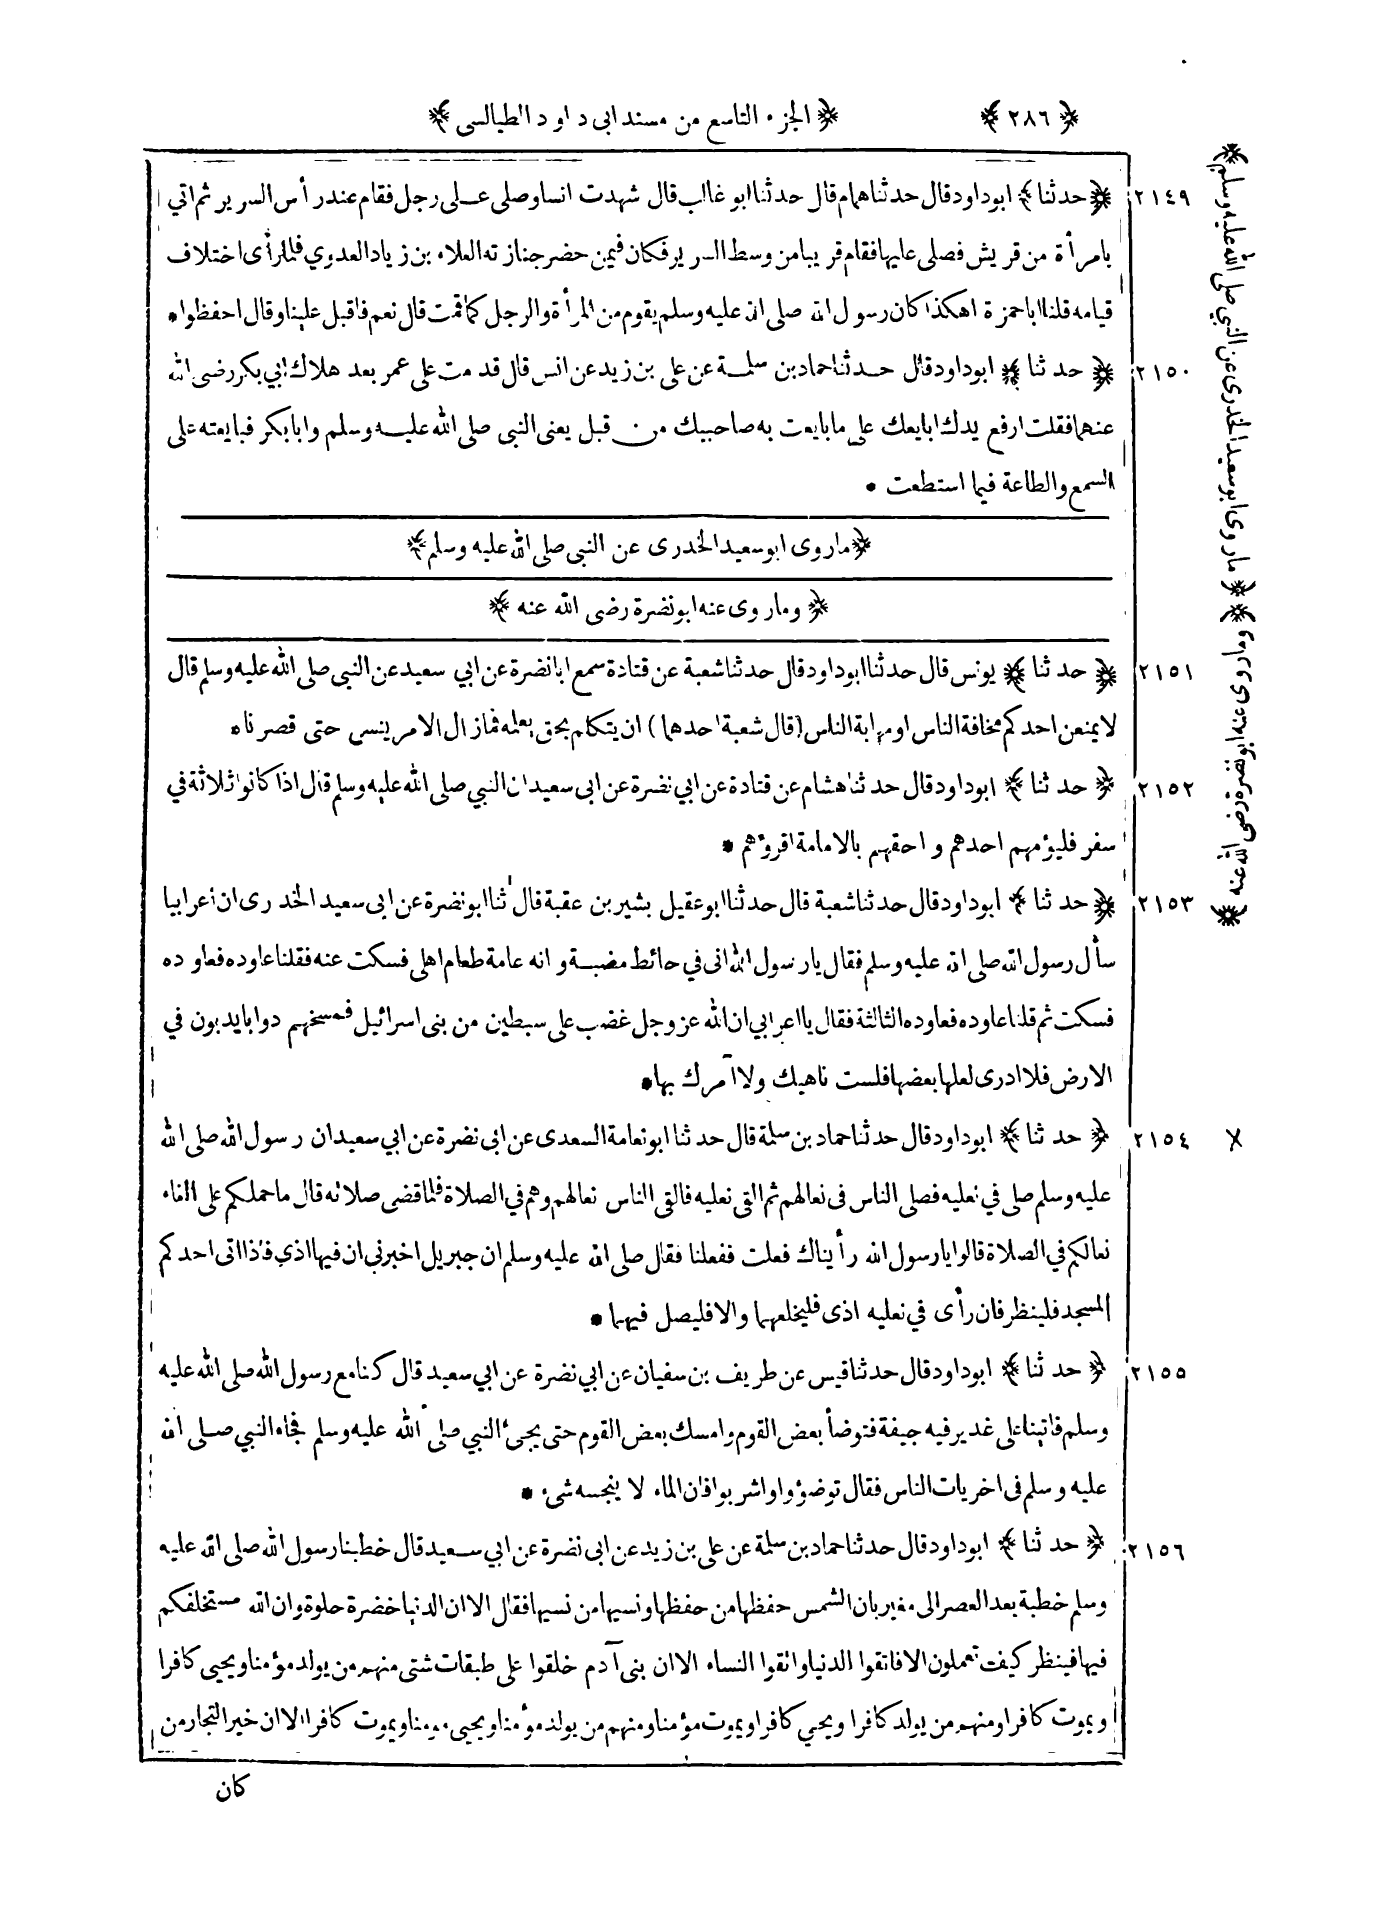 ﴿ ٢٨٦ ﴾ ﴿ الجزء التاسع من مسند ابى داود الطيالسى ﴾
٢١٤٩ ﴿ حدثنا ﴾ ابوداود قال حدثنا همام قال حدثنا ابو غالب قال شهدت انسا وصلى على رجل فقام عند رأس السرير ثم اتي
بامرأة من قريش فصلى عليها فقام قريبا من وسط السرير فكان فيمن حضر جنازته العلاء بن زياد العدوي فلما رأى اختلاف
قيامه قلنا اباحمزة اهكذا كان رسول الله صلى الله عليه وسلم يقوم من المرأة والرجل كما قمت قال نعم فاقبل علينا وقال احفظوا *
٢١٥٠ ﴿ حدثنا ﴾ ابوداود قال حدثنا حماد بن سلمة عن على بن زيد عن انس قال قدمت على عمر بعد هلاك ابي بكر رضى الله
عنهما فقلت ارفع يدك ابايعك على ما بايعت به صاحبيك من قبل يعنى النبى صلى الله عليه وسلم وابا بكر فبايعته على
السمع والطاعة فيما استطعت *
﴿ ماروى ابوسعيد الخدرى عن النبى صلى الله عليه وسلم ﴾
﴿ وماروى عنه ابونضرة رضى الله عنه ﴾
٢١٥١ ﴿ حدثنا ﴾ يونس قال حدثنا ابوداود قال حدثنا شعبة عن قتادة سمع ابانضرة عن ابي سعيد عن النبى صلى الله عليه وسلم قال
لا يمنعن احدكم مخافة الناس او مهابة الناس (قال شعبة احدهما) ان يتكلم بحق يعلمه فمازال الامر ينسى حتى قصرنا *
٢١٥٢ ﴿ حدثنا ﴾ ابوداود قال حدثنا هشام عن قتادة عن ابي نضرة عن ابى سعيد ان النبي صلى الله عليه وسلم قال اذا كانوا ثلاثة في
سفر فليؤمهم احدهم و احقهم بالامامة اقرؤهم *
٢١٥٣ ﴿ حدثنا ﴾ ابوداود قال حدثنا شعبة قال حدثنا ابوعقيل بشير بن عقبة قال ثنا ابونضرة عن ابى سعيد الخدرى ان اعرابيا
سأل رسول الله صلى الله عليه وسلم فقال يارسول الله انى في حائط مضبة وانه عامة طعام اهلى فسكت عنه فقلنا عاوده فعاوده
فسكت ثم قلنا عاوده فعاوده الثالثة فقال يااعرابي ان الله عز وجل غضب على سبطين من بنى اسرائيل فمسخهم دوابا يدبون في
الارض فلا ادرى لعلها بعضها فلست ناهيك ولا آمرك بها *
٢١٥٤ ﴿ حدثنا ﴾ ابوداود قال حدثنا حماد بن سلمة قال حدثنا ابونعامة السعدى عن ابى نضرة عن ابي سعيد ان رسول الله صلى الله
عليه وسلم صلى في نعليه فصلى الناس فى نعالهم ثم القى نعليه فالقى الناس نعالهم وهم في الصلاة فلما قضى صلاته قال ما حملكم على القاء
نعالكم في الصلاة قالوا يارسول الله رأيناك فعلت ففعلنا فقال صلى الله عليه وسلم ان جبريل اخبرني ان فيها اذى فاذا اتى احدكم
المسجد فلينظر فان رأى في نعليه اذى فليخلعهما والا فليصل فيهما *
٢١٥٥ ﴿ حدثنا ﴾ ابوداود قال حدثنا قيس عن طريف بن سفيان عن ابي نضرة عن ابي سعيد قال كنا مع رسول الله صلى الله عليه
وسلم فاتينا على غدير فيه جيفة فتوضأ بعض القوم وامسك بعض القوم حتى يجئ النبي صلى الله عليه وسلم فجاء النبي صلى الله
عليه وسلم فى اخريات الناس فقال توضؤوا واشربوا فان الماء لا ينجسه شىء *
٢١٥٦ ﴿ حدثنا ﴾ ابوداود قال حدثنا حماد بن سلمة عن على بن زيد عن ابى نضرة عن ابي سعيد قال خطبنا رسول الله صلى الله عليه
وسلم خطبة بعد العصر الى مغيربان الشمس حفظها من حفظها ونسيها من نسيها فقال الا ان الدنيا خضرة حلوة وان الله مستخلفكم
فيها فينظر كيف تعملون الا فاتقوا الدنيا واتقوا النساء الا ان بنى آدم خلقوا على طبقات شتى منهم من يولد مؤمنا ويحيى كافرا
ويموت كافرا ومنهم من يولد كافرا ويحيى كافرا ويموت مؤمنا ومنهم من يولد مؤمنا ويحيى مومنا ويموت كافرا الا ان خير التجار من
كان
﴿ ماروى ابوسعيد الخدرى عن النبي صلى الله عليه وسلم ﴾ ﴿ وماروى عنه ابونضرة رضى الله عنه ﴾